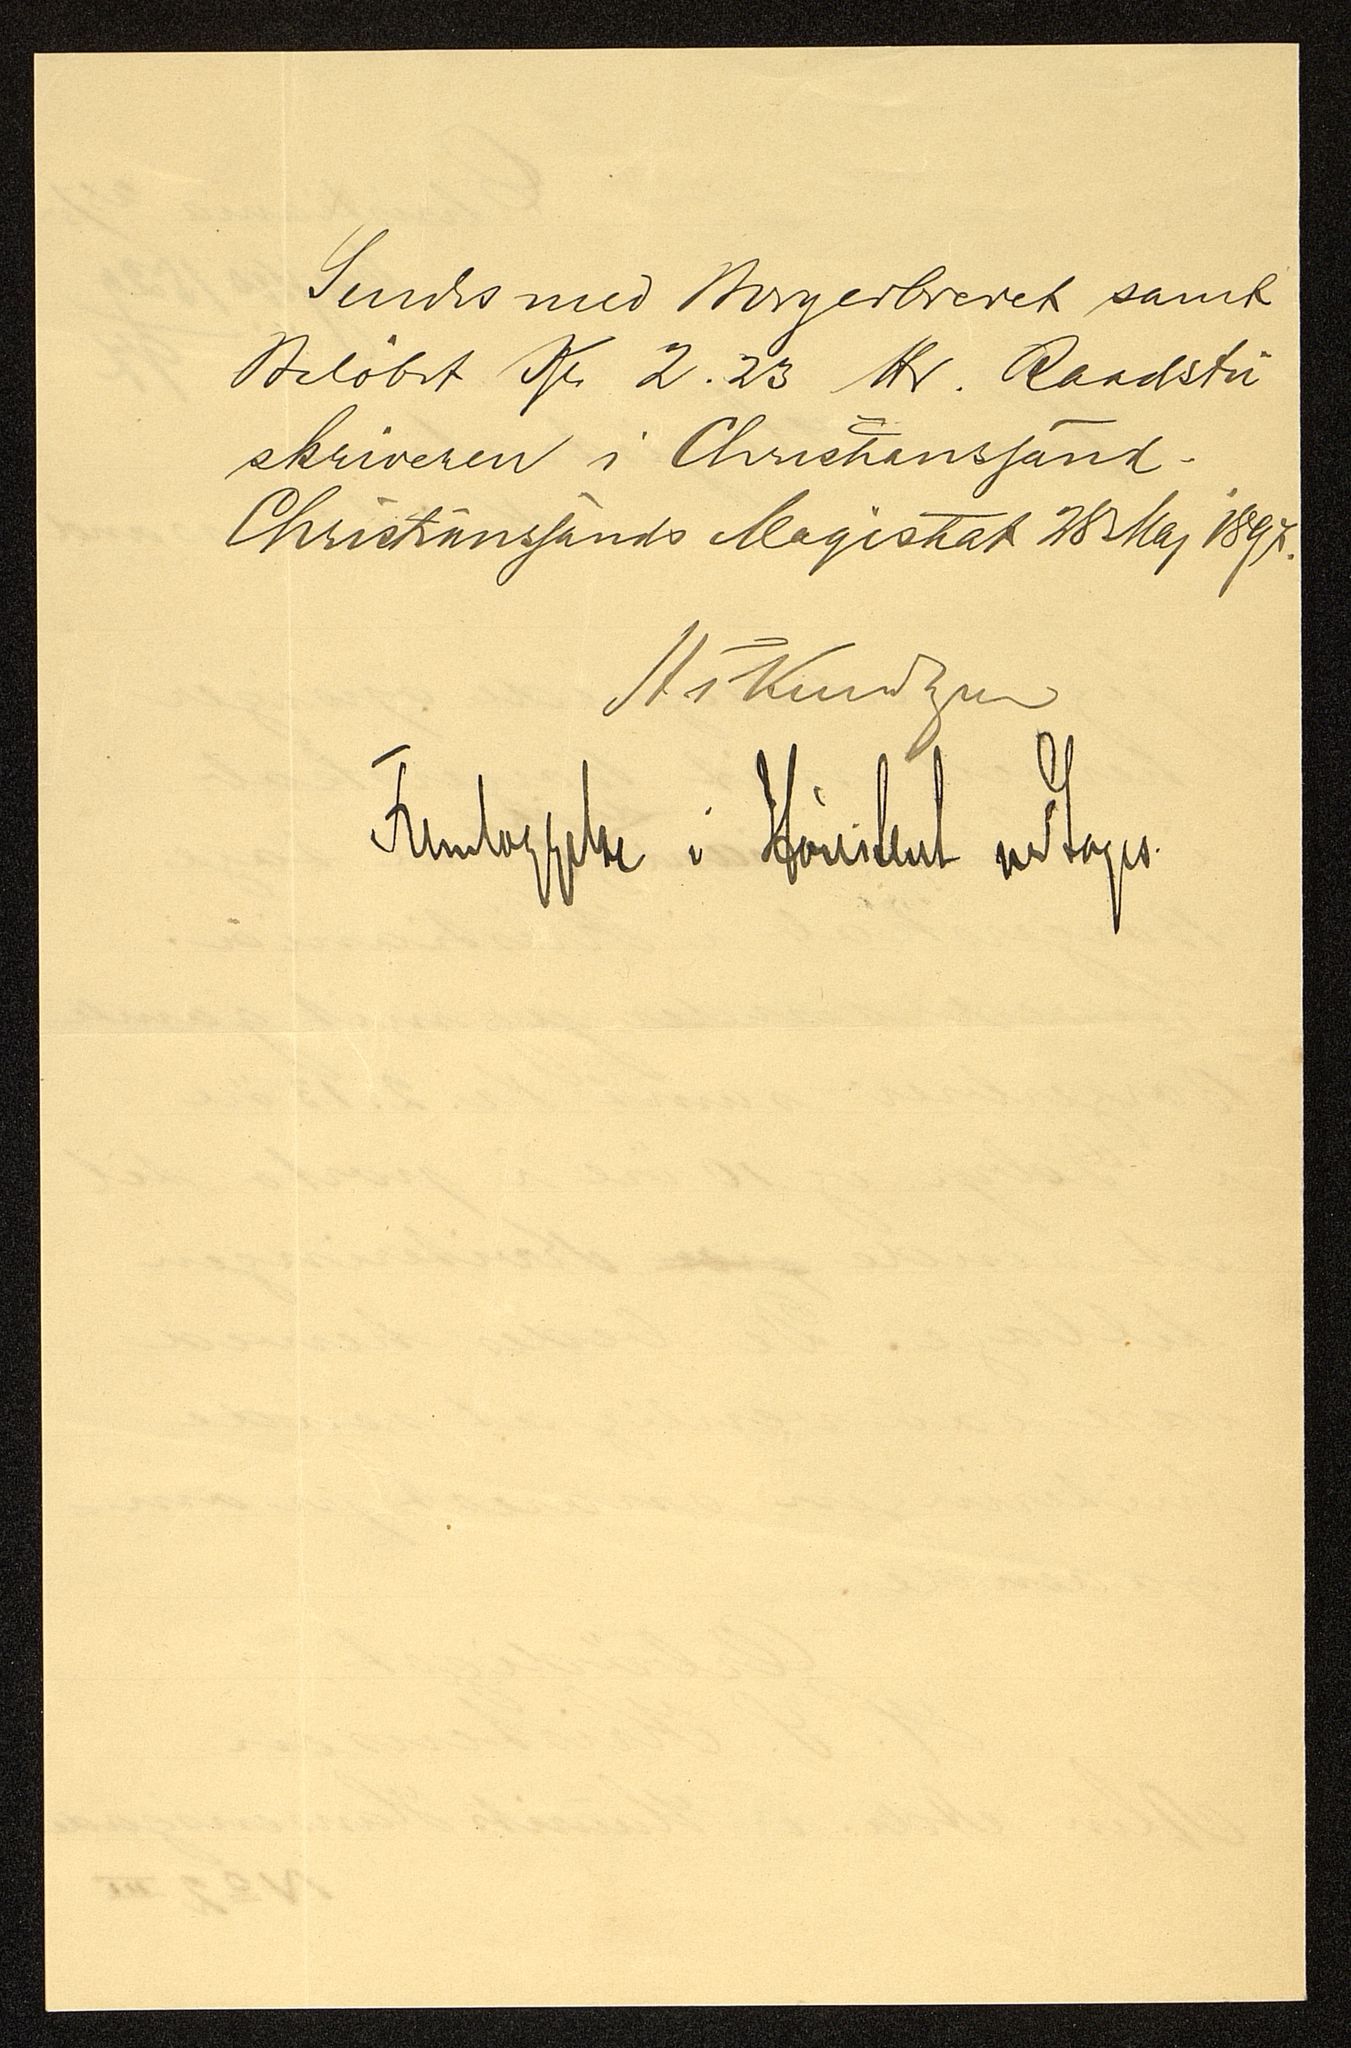 Sendes med Borgerbrevet samt
Beløbet Kr 2.23 Hr. Raadstu
skriveren i Christianssand.
Christianssands Magistrat 28 Maj 1897.
Knudtzon
i modtages.